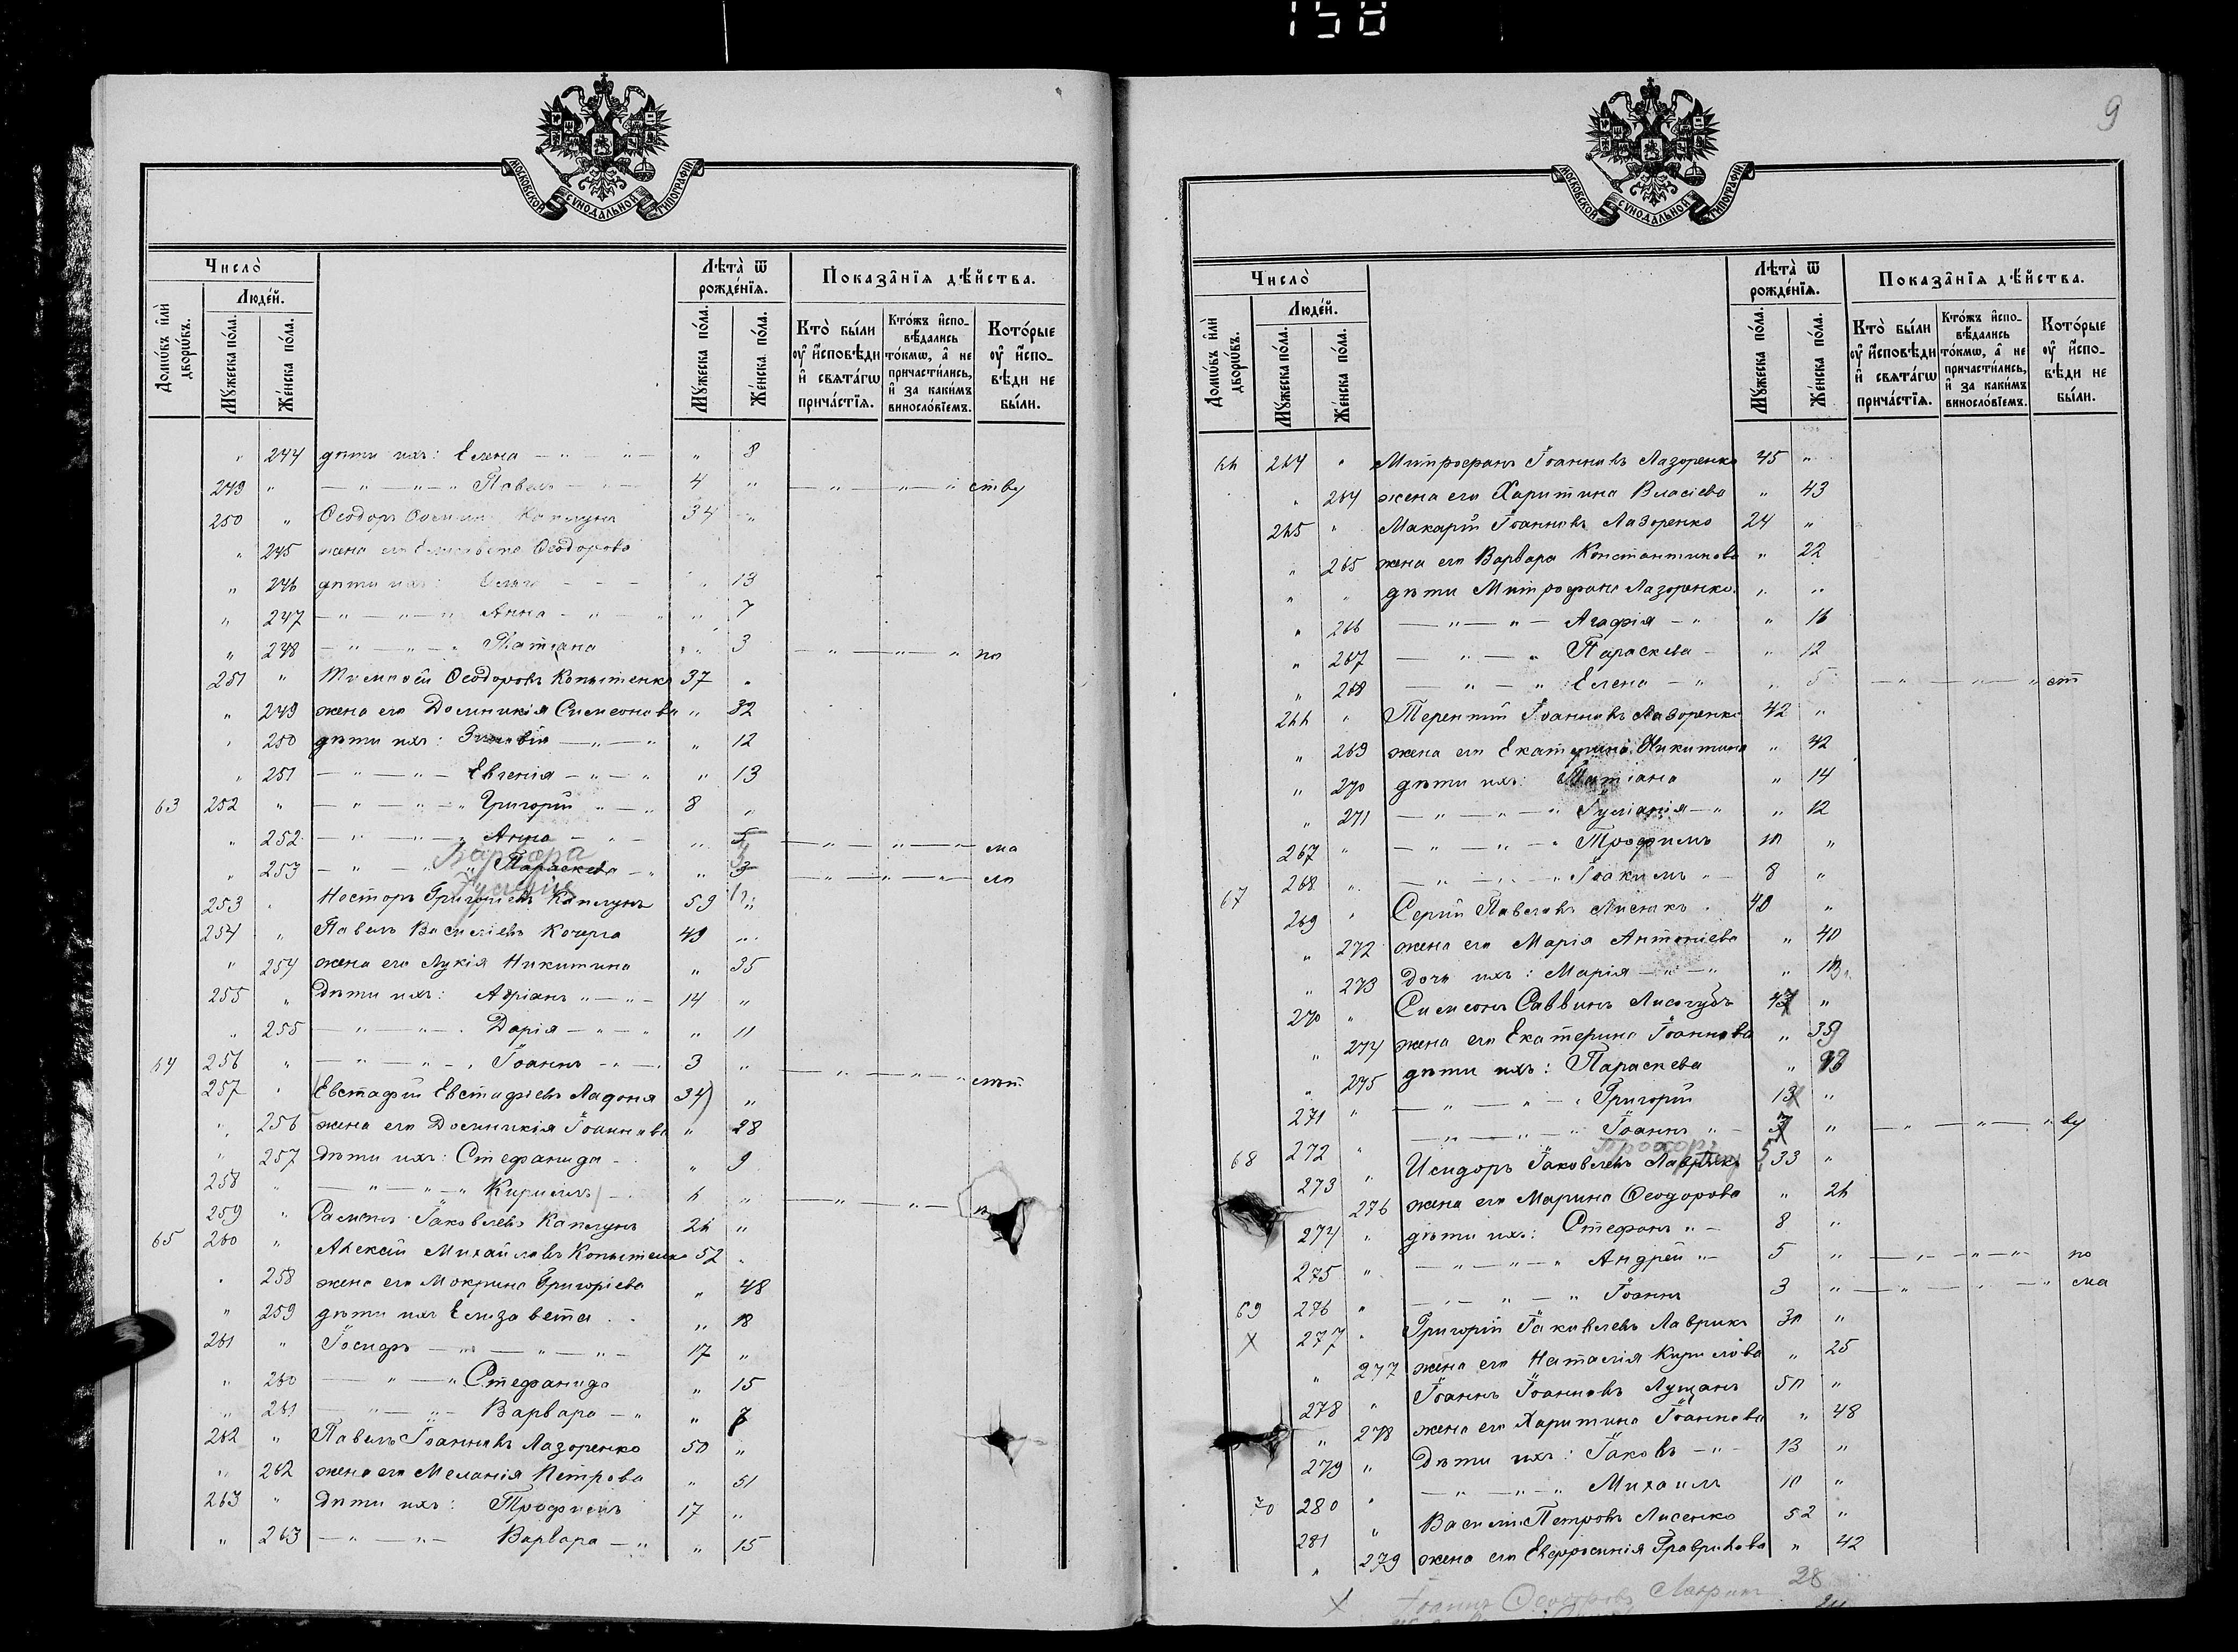 158
МОСКОВСКОЙ СѴНОДАЛЬНОЙ ТИПОГРАФІИ
Число̀
Людéй.
Домѡ́въ и҆лѝ дворѡ́въ.
Мꙋ́жеска по́ла.
Же́нска по́ла.
Лѣ́та ѿ рожде́нїѧ.
Мꙋ́жеска по́ла.
Же́нска по́ла.
Показа̑нїѧ дѣ́йства.
Кто̀ бы́ли ᲂу҆ и҆сповѣ́ди и҆ свѧта́гѡ прича́стїѧ.
Кто́жъ и҆спо-вѣ́дались то́кмѡ, а҆ не причасти́лись, и҆ за каки́мъ виносло́вїемъ.
Кото́рые ᲂу҆ и҆спо-вѣ́ди не бы́ли.
" 244 дѣти ихъ: Елена — " — " — " 8
249 " — " — " — " Павелъ — " — 4 " — " — " — " ству
250 " Ѳеодоръ Каплунъ 34 "
" 245 жена его Елисавета Ѳеодорова
" 246 дѣти ихъ: — — " 13
" 247 — " — " — " Анна — " — " " 7
" 248 — " — " — " Татіана " 3 — " — " — " по
251 " Тимоѳей Ѳеодоровъ Копытенко 37 "
" 249 жена его Домникія Симеонова " 32
" 250 дѣти ихъ: Зиновія — " — " " 12
" 251 — " — " — Евгенія — " — " " 13
63 252 " — " — " — " Григорій " — " 8 "
" 252 — " — " — " Анна — " — " 5 — " — " — " ма
Варвара
" 253 — " — " — " Параскева — " " 3 — " — " — " ло
Іуліанія
253 " Несторъ Григоріевъ Каплунъ 59 "
254 " Павелъ Василіевъ Кочерга 49 "
" 254 жена его Лукія Никитина " 35
255 " Дѣти ихъ: Адріанъ " — " — 14 "
" 255 — " — " — " Дарія — " — " " 11
64 256 " — " — " — " Іоаннъ — " — 3 " — " — " — "
257 " Евстафій Евстафіевъ Ладоня 34 "
" 256 жена его Домникія Іоаннова " 28
" 257 Дѣти ихъ: Стефанида — " 9
258 " — " — " — " Кириллъ — 6 " — " — "
259 " Іаковлевъ Каплунъ 26 "
65 260 " Алексій Михайловъ Копытенко 52 "
" 258 жена его Мокрина Григоріева " 48
" 259 дѣти ихъ Елизавета " 18
261 " Іосифъ — " — " — " — 17 "
" 260 — " — " Стефанида " 15
" 261 — " — " — Варвара — " " 7
262 " Павелъ Іоанновъ Лазоренко 50 "
" 262 жена его Меланія Петрова " 51
263 " Дѣти ихъ: Трофимъ 17 "
" 263 — " — " — Варвара — " " 15
9
МОСКОВСКОЙ СѴНОДАЛЬНОЙ ТИПОГРАФІИ
Число̀
Людéй.
Домѡ́въ и҆лѝ дворѡ́въ.
Мꙋ́жеска по́ла.
Же́нска по́ла.
Лѣ́та ѿ рожде́нїѧ.
Мꙋ́жеска по́ла.
Же́нска по́ла.
Показа̑нїѧ дѣ́йства.
Кто̀ бы́ли ᲂу҆ и҆сповѣ́ди и҆ свѧта́гѡ прича́стїѧ.
Кто́жъ и҆спо-вѣ́дались то́кмѡ, а҆ не причасти́лись, и҆ за каки́мъ виносло́вїемъ.
Кото́рые ᲂу҆ и҆спо-вѣ́ди не бы́ли.
66 264 " Митрофанъ Іоанновъ Лазоренко 45 "
" 264 жена его Харитина Власіева " 43
265 " Макарій Іоанновъ Лазоренко 24 "
" 265 жена его Варвара Константинова " 22
" " дѣти Митрофана Лазоренко " "
" 266 — " — " — Агафія — " " 16
" 267 — " — " Параскева — " 12
" 268 — " — " Елена — " " 5 — " — " — "
266 " Терентій Іоанновъ Лазоренко 42 "
" 269 жена его Екатерина Никитина " 42
" 270 дѣти ихъ: Татіана " 14
" 271 — " — " — " Іуліанія — " " 12
267 " — " — " — " Трофимъ 10 "
268 " — " — " — " Іоакимъ " — 8 "
67 269 " Сергій Павловъ Лисиакъ 40 "
" 272 жена его Марія Антоніева " 40
" 273 Дочь ихъ: Марія — " — " "
270 " Симеонъ Саввинъ Лисогубъ "
" 274 жена его Екатерина Іоаннова " 35
" 275 дѣти ихъ: Параскева "
271 " — " — " — " Григорій 13 "
272 " — " — " — " Іоаннъ " — " — " — " — " ву
Прохоръ 5
68 273 " Исидоръ Іаковлевъ Лаврикъ 33 "
" 276 жена его Марина Ѳеодорова " 26
274 " дѣти ихъ: Стефанъ " — 8 "
275 " — " — " — " Андрей " — 5 " — " — " — " по
276 " — " — " — " Іоаннъ 3 " — " — " — " ма
69 277 " Григорій Іаковлевъ Лаврикъ 30 "
" 277 жена его Наталія Кирилова " 25
278 " Іоаннъ Іоанновъ Лущанъ 50 "
" 278 жена его Харитина Іоаннова " 48
279 " Дѣти ихъ: Іаковъ — " — 13 "
280 " — " — " — " Михаилъ 10 "
70 281 " Василій Петровъ Лисенко 52 "
" 279 жена его Евфросинія Гаврилова " 42
Х Іоаннъ Ѳеодоровъ Лаврикъ 28